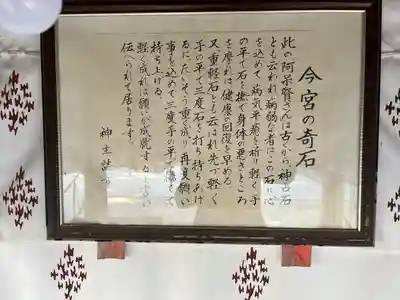 今宮の奇石
此の阿呆賢さんは古くから、神占石
とも云われ病弱な者はこの石に心
を込めて、病気平癒を祈り、軽く手
の平で石を撫で身体の悪きところ
を摩れば、健康の回復を早める
又、重軽石とも云はれ先づ軽く
手の平で三度石を打ち持ちあげ
るにたいそう重く成り再度願い
事を込めて三度手の平で撫でて
持ち上げる。
軽く成れば願いが成就すると言い
伝へられて居ります。
神主